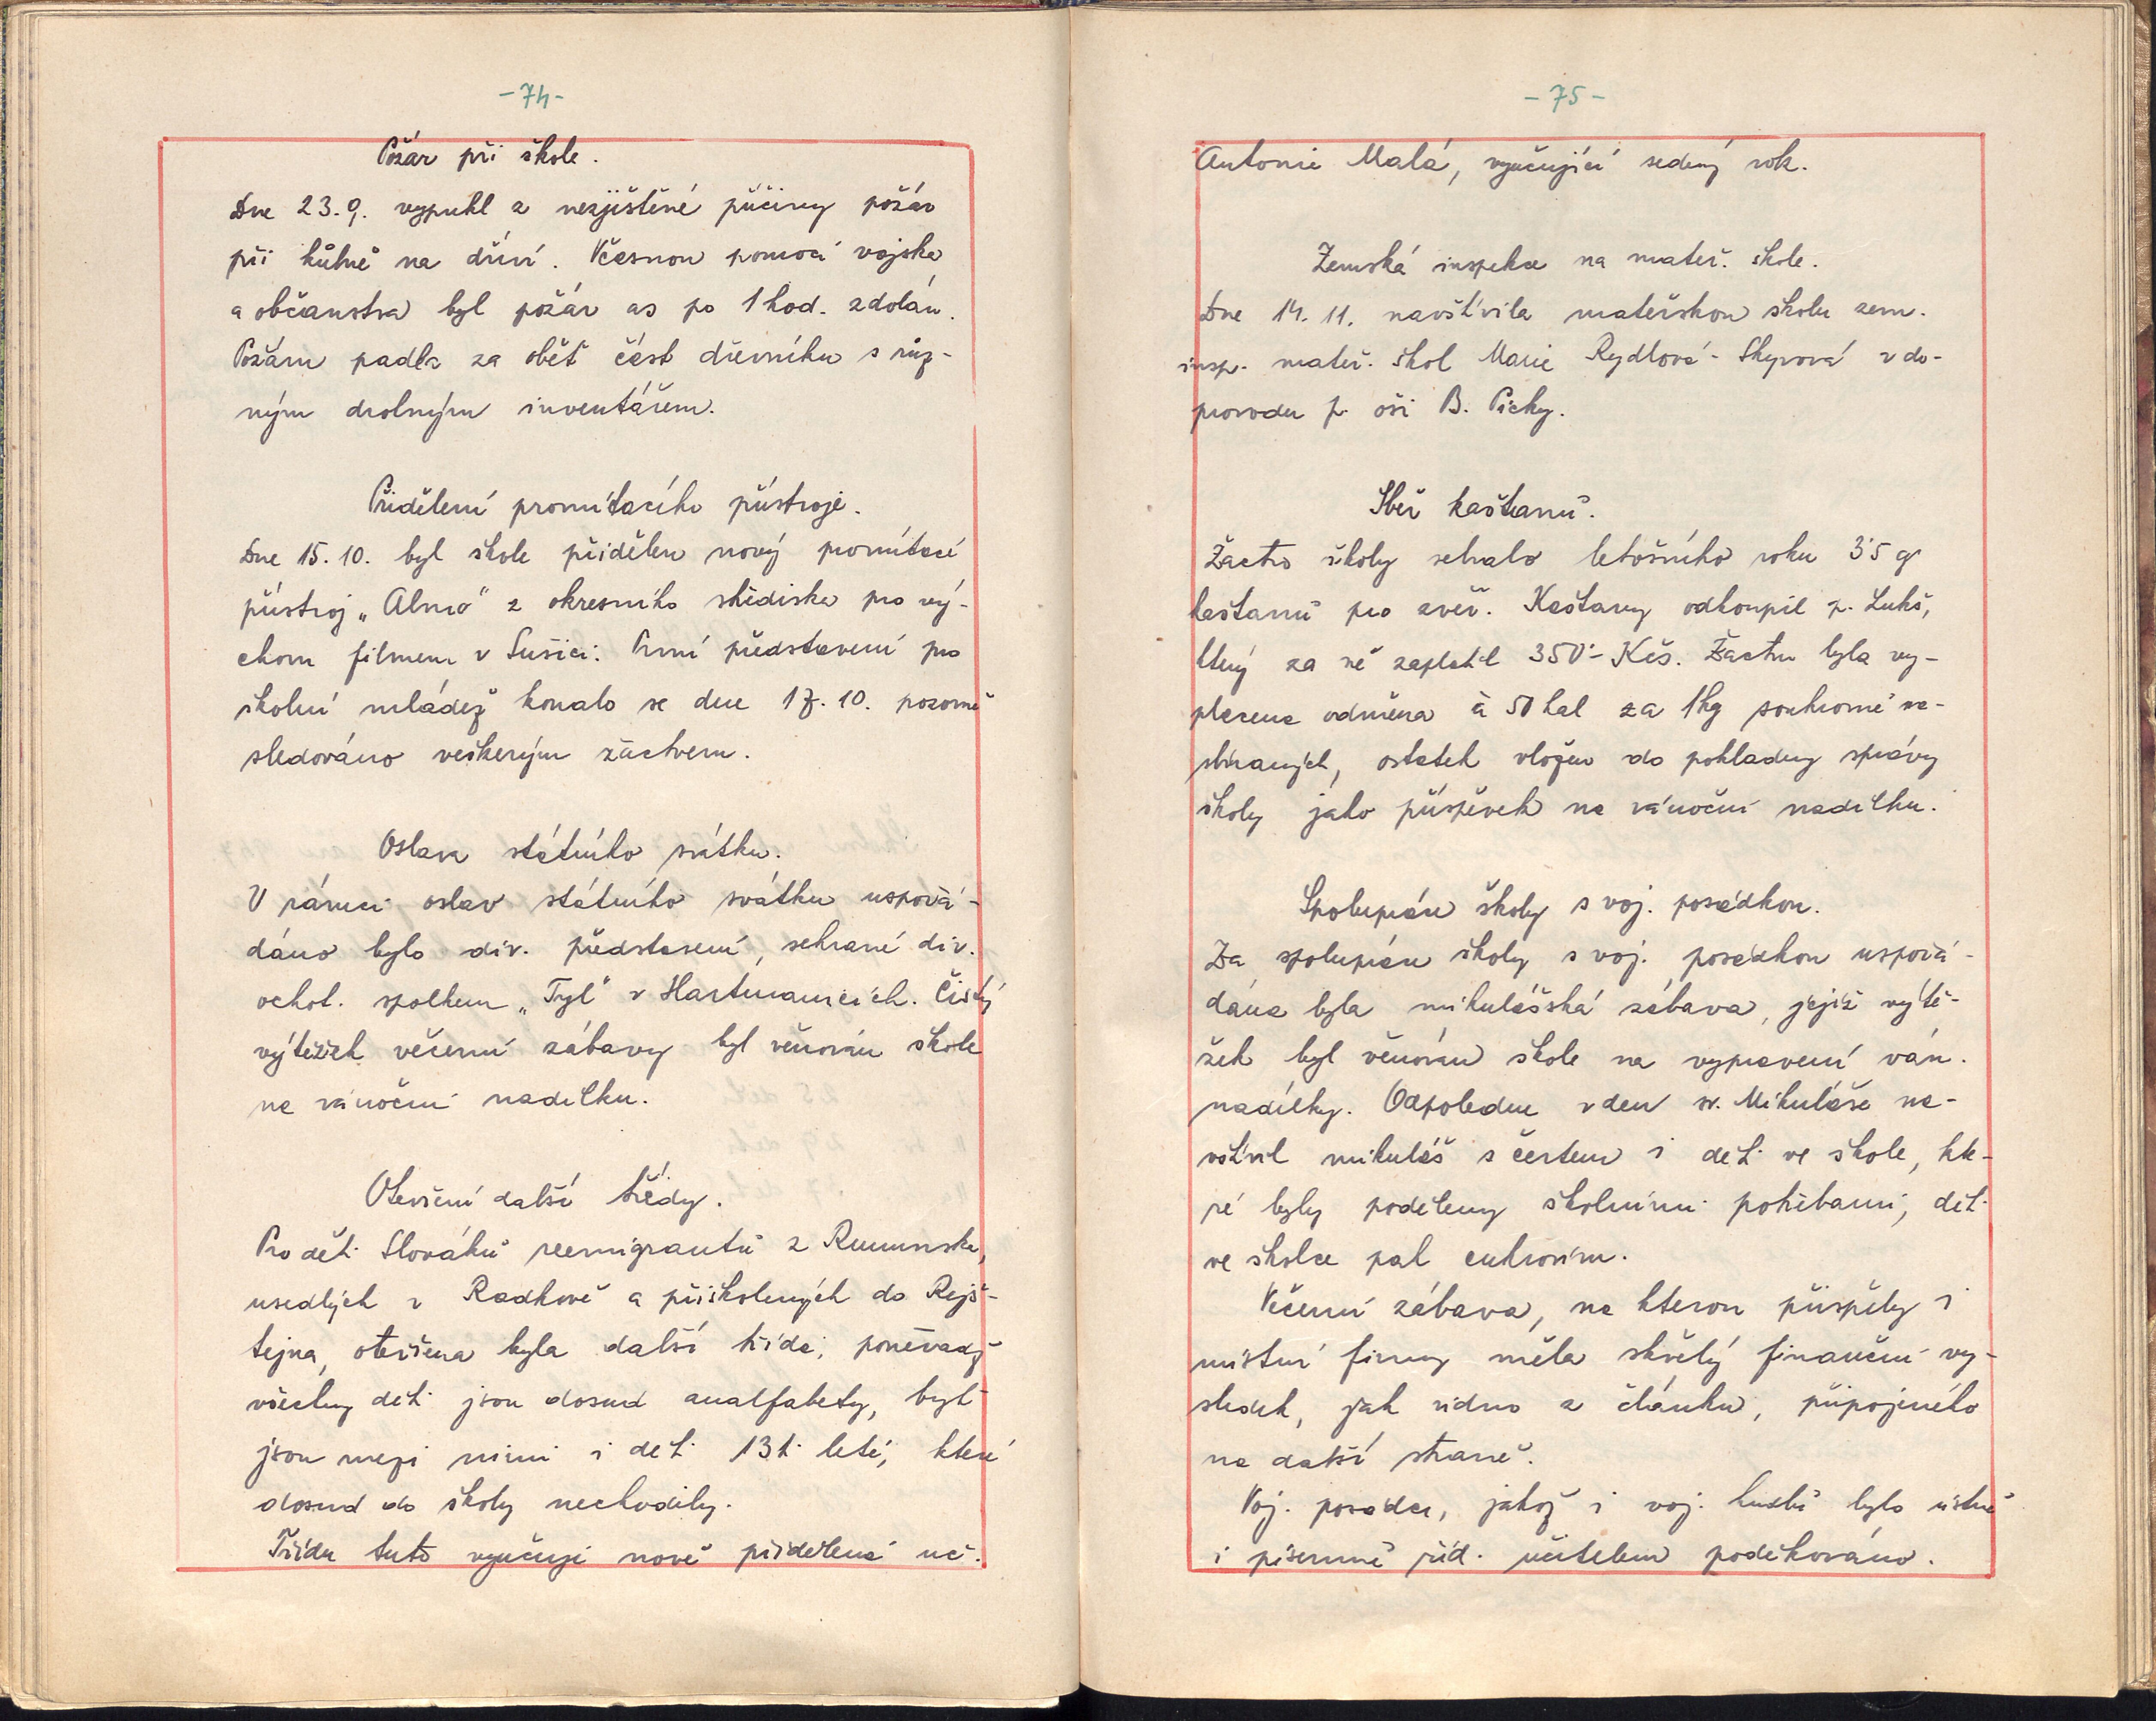 - 74 -
Požár při škole.
Dne 23. 9. vypukl z nezjištěné příčiny požár
při kůlně na dříví. Včasnou pomocí vojska
a občanstva byl požár as po 1 hod. zdolán.
Požáru padla za oběť část dřevníku s růz-
ným drobným inventářem.
Přidělení promítacího přístroje.
Dne 15. 10. byl škole přidělen nový promítací
přístroj „Almo" z okresního střediska pro vý-
chovu filmem v Sušici. První představení pro
školní mládež konalo se dne 17. 10. pozorně
sledováno veškerým žactvem.
Oslava státního svátku.
V rámci oslav státního svátku uspořá-
dáno bylo div. představení, sehrané div.
ochot. spolkem „Tyl" v Hartmanicích. Čistý
výtěžek večerní zábavy byl věnován škole
na vánoční nadílku.
Otevření další třídy.
Pro děti Slováků reemigrantů z Rumunska,
usedlých v Radkově a přiškolených do Rejš-
tejna, otevřena byla další třída, poněvadž
všechny děti jsou dosud analfabety, byť
jsou mezi nimi i děti 13ti leté, které
dosud do školy nechodily.
Třídu tuto vyučuje nově přidělená uč.
- 75 -
Antonie Malá, vyučující sedmý rok.
Zemská inspekce na mateř. škole.
Dne 14. 11. navštívila mateřskou školu zem.
insp. mateř. škol Marie Rydlová - Skyvová v do-
provodu p. oši B. Píchy.
Sběr kaštanů.
Žactvo školy sebralo letošního roku 3˙5 q
kaštanů pro zvěř. Kaštany odkoupil p. Lukš,
který za ně zaplatil 350˙- Kčs. Žactvu byla vy-
placena odměna à 50 hal za 1 kg soukromě na-
sbíraných, ostatek vložen do pokladny správy
školy jako příspěvek na vánoční nadílku.
Spolupráce školy s voj. posádkou.
Za spolupráce školy s voj. posádkou uspořá-
dána byla mikulášská zábava, jejíž výtě-
žek byl věnován škole na vypravení ván.
nadílky. Odpoledne v den sv. Mikuláše na-
vštívil mikuláš s čertem i děti ve škole, kte-
ré byly poděleny školními potřebami, děti
ve školce pak cukrovím.
Večerní zábava, na kterou přispěly i
místní firmy měla skvělý finanční vý-
sledek, jak vidno z článku, připojeného
na další straně.
Voj. posádce, jakož i voj. hudbě bylo ústně
i písemně říd. učitelem poděkováno.